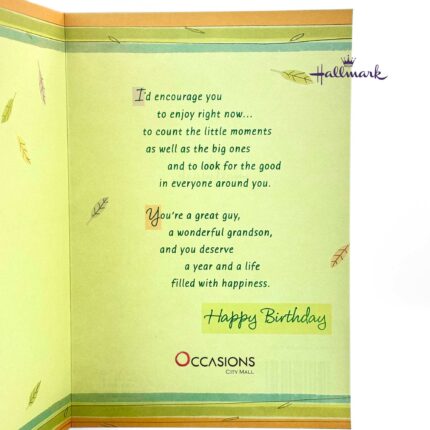 Hallmark
I'd encourage you
to enjoy right now...
to count the little moments
as well as the big ones
and to look for the good
in everyone around you.
You're a great guy,
a wonderful grandson,
and you deserve
a year and a life
filled with happiness.
Happy Birthday
OCCASIONS
CITY MALL